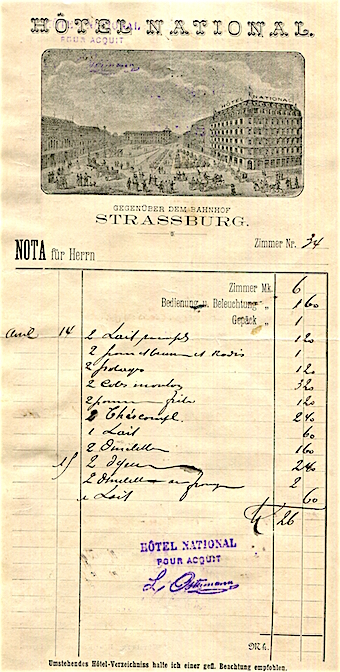 HÔTEL NATIONAL.
HÔTEL NATIONAL
POUR ACQUIT
HÔTEL NATIONAL
GEGENÜBER DEM BAHNHOF
STRASSBURG.
NOTA für Herrn Zimmer Nr. 34
Zimmer Mk. 6
Bedienung u. Beleuchtung „ 1 60
Gepäck „ 1
Avril 14 2 Lait 1 20
2 1
2 potages 1 20
2 Cotes mouton 3 20
2 pommes 1 20
2 Thé compl. 2 40
1 Lait 60
2 1 60
15 2 2 40
2 2
1 Lait 60
26
HÔTEL NATIONAL
POUR ACQUIT
Mk.
Umstehendes Hôtel-Verzeichniss halte ich einer gefl. Beachtung empfohlen.